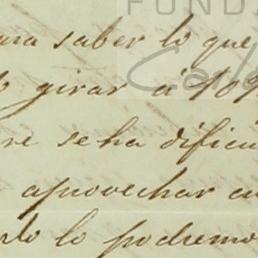 FUNDA
ara saber lo que
girar á
re se ha dificu
aprovechar
lo podremo